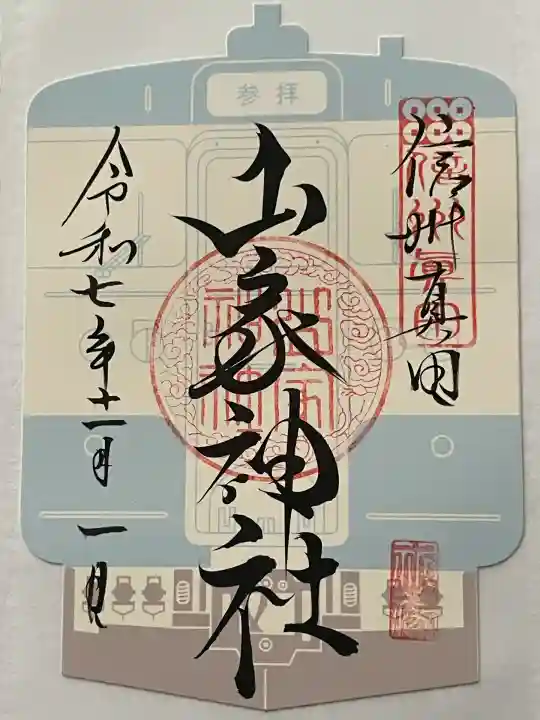 参拝
信州真田
山家神社
令和七年十一月一日